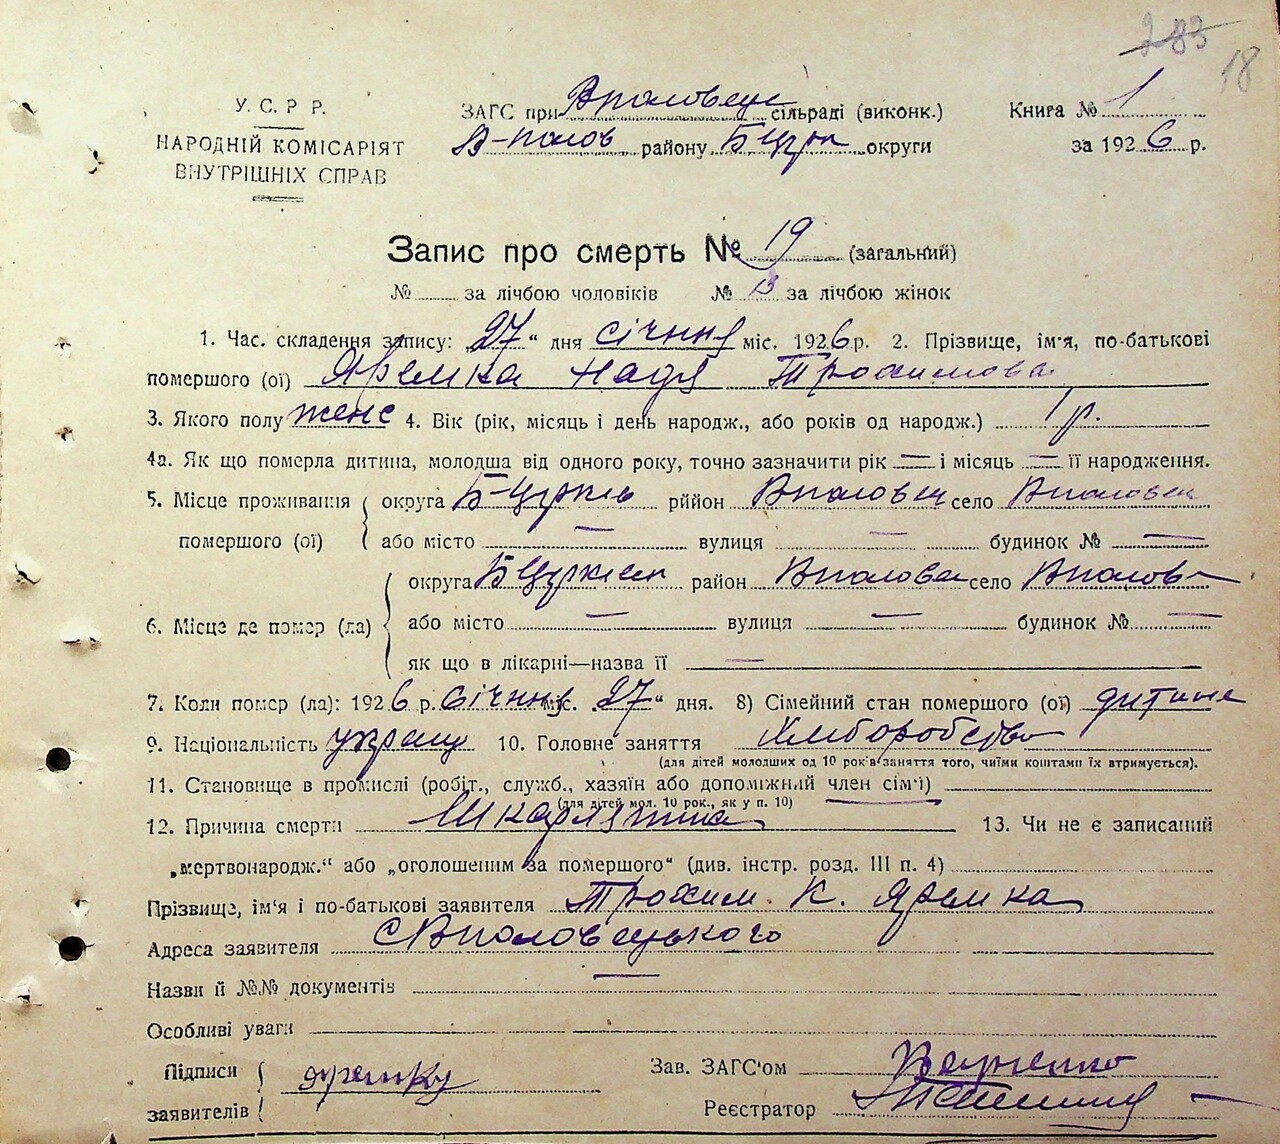 283
18
У. С. Р. Р.
НАРОДНІЙ КОМІСАРІЯТ
ВНУТРІШНІХ СПРАВ
ЗАГС при Вполовец сільраді (виконк.)
В-полов району Б Церк округи
Книга № 1
за 1926 р.
Запис про смерть № 19 (загальний)
№ за лічбою чоловіків № 13 за лічбою жінок
1. Час складення запису: 27" дня січння міс. 1926 р. 2. Прізвище, ім'я, по-батькові
помершого (ої) Яремка Надя Трохимова
3. Якого полу женс 4. Вік (рік, місяць і день народж., або років од народж.) 1 р.
4а. Як що померла дитина, молодша від одного року, точно зазначити рік — і місяць — її народження.
5. Місце проживання помершого (ої) округа Б-Церків рййон Вполовец село Вполовец
або місто — вулиця — будинок № —
6. Місце де помер (ла) округа БЦеркис район Вполовец село Вполов
або місто — вулиця — будинок № —
як що в лікарні—назва її —
7. Коли помер (ла): 1926 р. січння міс. „27" дня. 8) Сімейний стан помершого (ої) дитина
9. Національність україц 10. Головне заняття Хліборобство
(для дітей молодших од 10 років заняття того, чиїми коштами їх втримується).
11. Становище в промислі (робіт., служб., хазяїн або допоміжний член сім'ї) —
(для дітей мол. 10 рок., як у п. 10)
12. Причина смерти Шкарлятина 13. Чи не є записаний
„мертвонародж." або „оголошеним за помершого" (див. інстр. розд. III п. 4)
Прізвище, ім'я і по-батькові заявителя Трохим К. Яремка
Адреса заявителя с Вполовецького
Назви й №№ документів —
Особливі уваги
Підписи заявителів Яремку
Зав. ЗАГС'ом
Реєстратор